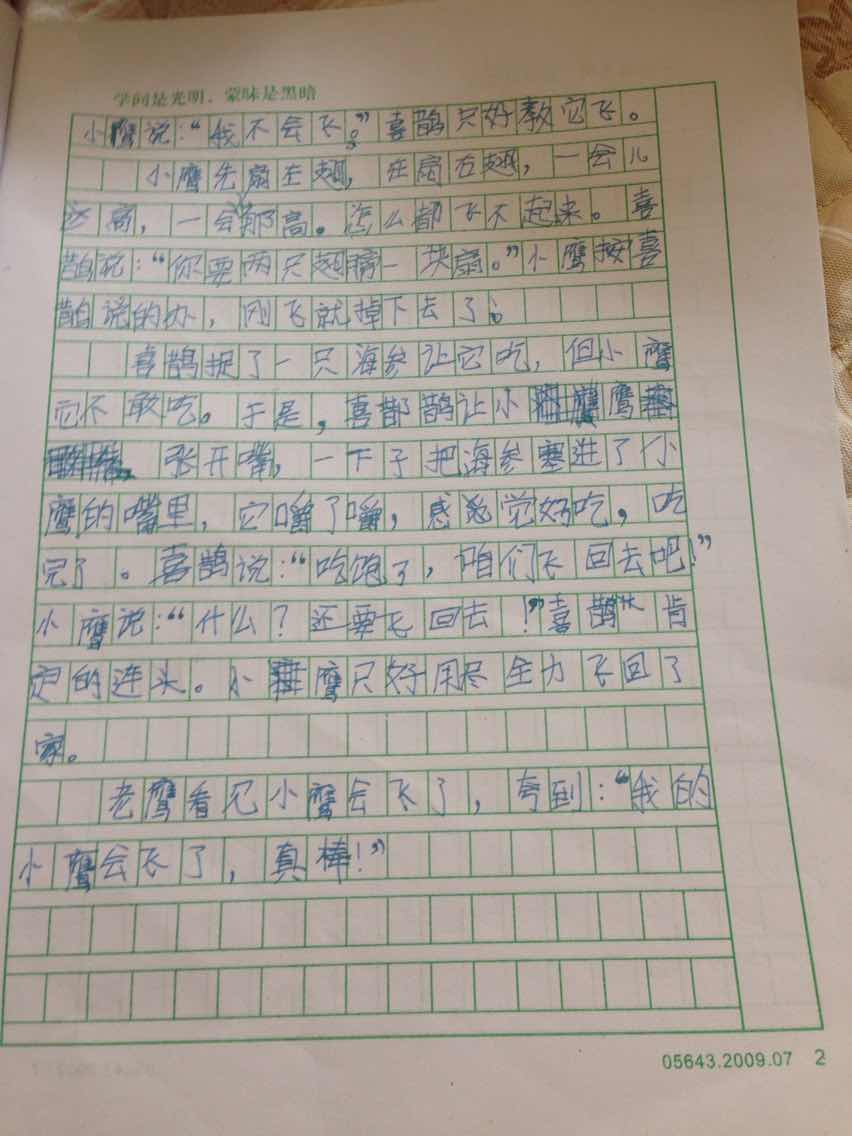 学问是光明，蒙昧是黑暗
小鹰说：“我不会飞。”喜鹊只好教它飞。
小鹰先扇左翅，在扇右翅，一会儿
这高，一会那高。怎么都飞不起来。喜
鹊说：“你要两只翅膀一块扇。”小鹰按喜
鹊说的办，刚飞就掉下去了。
喜鹊捉了一只海参让它吃，但小鹰
它不敢吃。于是，喜鹊让小鹰
张开嘴，一下子把海参塞进了小
鹰的嘴里，它嚼了嚼，感觉好吃，吃
完了。喜鹊说：“吃饱了，咱们飞回去吧！”
小鹰说：“什么？还要飞回去！”喜鹊肯
定的连头。小鹰只好用尽全力飞回了
家。
老鹰看见小鹰会飞了，夸到：“我的
小鹰会飞了，真棒！”
05643.2009.07 2